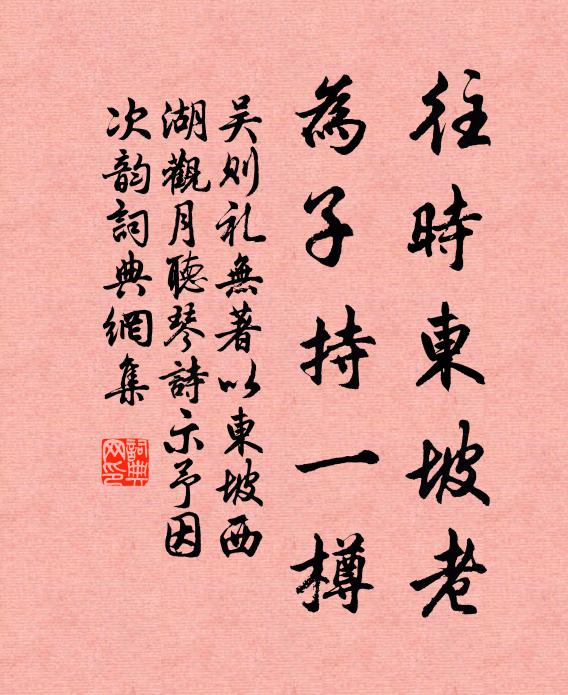 往時東坡老
為子持一樽
吴则礼無著以東坡西
湖觀月聽琴詩示予因
次韵詞典網集
詞典
网印